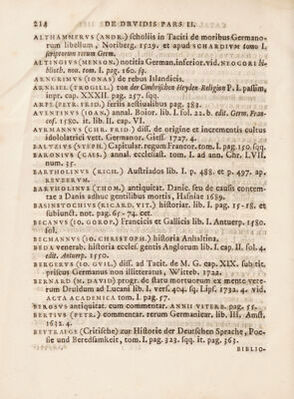 214 DE DRVIDIS PARS II.
ALTHAMMERVS (ANDR.) scholiis in Taciti de moribus Germano-
rum libellum, Noriberg. 1529. et apud SCHARDIVM tomo I.
scriptorum rerum Germ.
ALTINGIVS (MENSON.) notitia German. inferior. vid. NEOCORI bi-
blioth. nou. tom. I. pag. 160. sq.
ARNGRIMVS (IONAS) de rebus Islandicis.
ARNKIEL (TROGILL.) von der Cimbrischen Heyden Religion P. I. passim,
inpr. cap. XXXII. pag. 217. sqq.
ARPE (PETR. FRID.) feriis aestiualibus pag. 382.
AVENTINVS (IOAN.) annal. Boior. lib. I. fol. 22. b. edit. Germ. Fran-
cof. 1580. it. lib. II. cap. VI.
AYRMANNVS (CHR. FRID) diss. de origine et incrementis cultus
idololatrici vett. Germanor. Giess. 1727. 4.
BALVZIVS (STEPH.) Capitular. regum Francor. tom. I. pag. 150. sqq.
BARONIVS (CAES.) annal. ecclesiast. tom. I. ad ann. Chr. LVII.
num. 35.
BARTHOLINVS (RICH.) Austriados lib. I. p. 488. et p. 497. ap.
REVBERVM.
BARTHOLINVS (THOM.) antiquitat. Danic. seu de causis contem-
tae a Danis adhuc gentilibus mortis, Hafniae 1689.
BASINSTOCHIVS (RICARD. VIT.) historiar. lib. I. pag. 15-18. et
subiunct. not. pag. 65-74. cet.
BECANVS (IO. GOROP.) Francicis et Gallicis lib. I. Antuerp. 1580.
fol.
BECMANNVS (IO. CHRISTOPH.) historia Anhaltina.
BEDA venerab. historia eccles. gentis Anglorum lib. I. cap. II. fol. 4.
edit. Antuerp. 1550.
BERGERVS (IO. GVIL.) diss. ad Tacit. de M. G. cap. XIX. sub tit.
priscus Germanus non illitteratus, Witteb. 1722.
BERNARD (M. DAVID) progr. de statu mortuorum ex mente vete-
rum Druidum ad Lucani lib. I. vers. 404. sq. Lips. 1732. 4. vid.
ACTA ACADEMICA tom. I. pag. 57.
BEROSVS antiquitat. cum commentar. ANNII VITERB. pag. 55.
BERTIVS (PETR.) commentar. rerum Germanicar. lib. III. Amst.
1632. 4.
BEYTRAEGE (Critische) zur Historie der Deutschen Sprache, Poe-
sie und Beredsamkeit, tom. I. pag. 323. sqq. it. pag. 363.
BIBLIO-